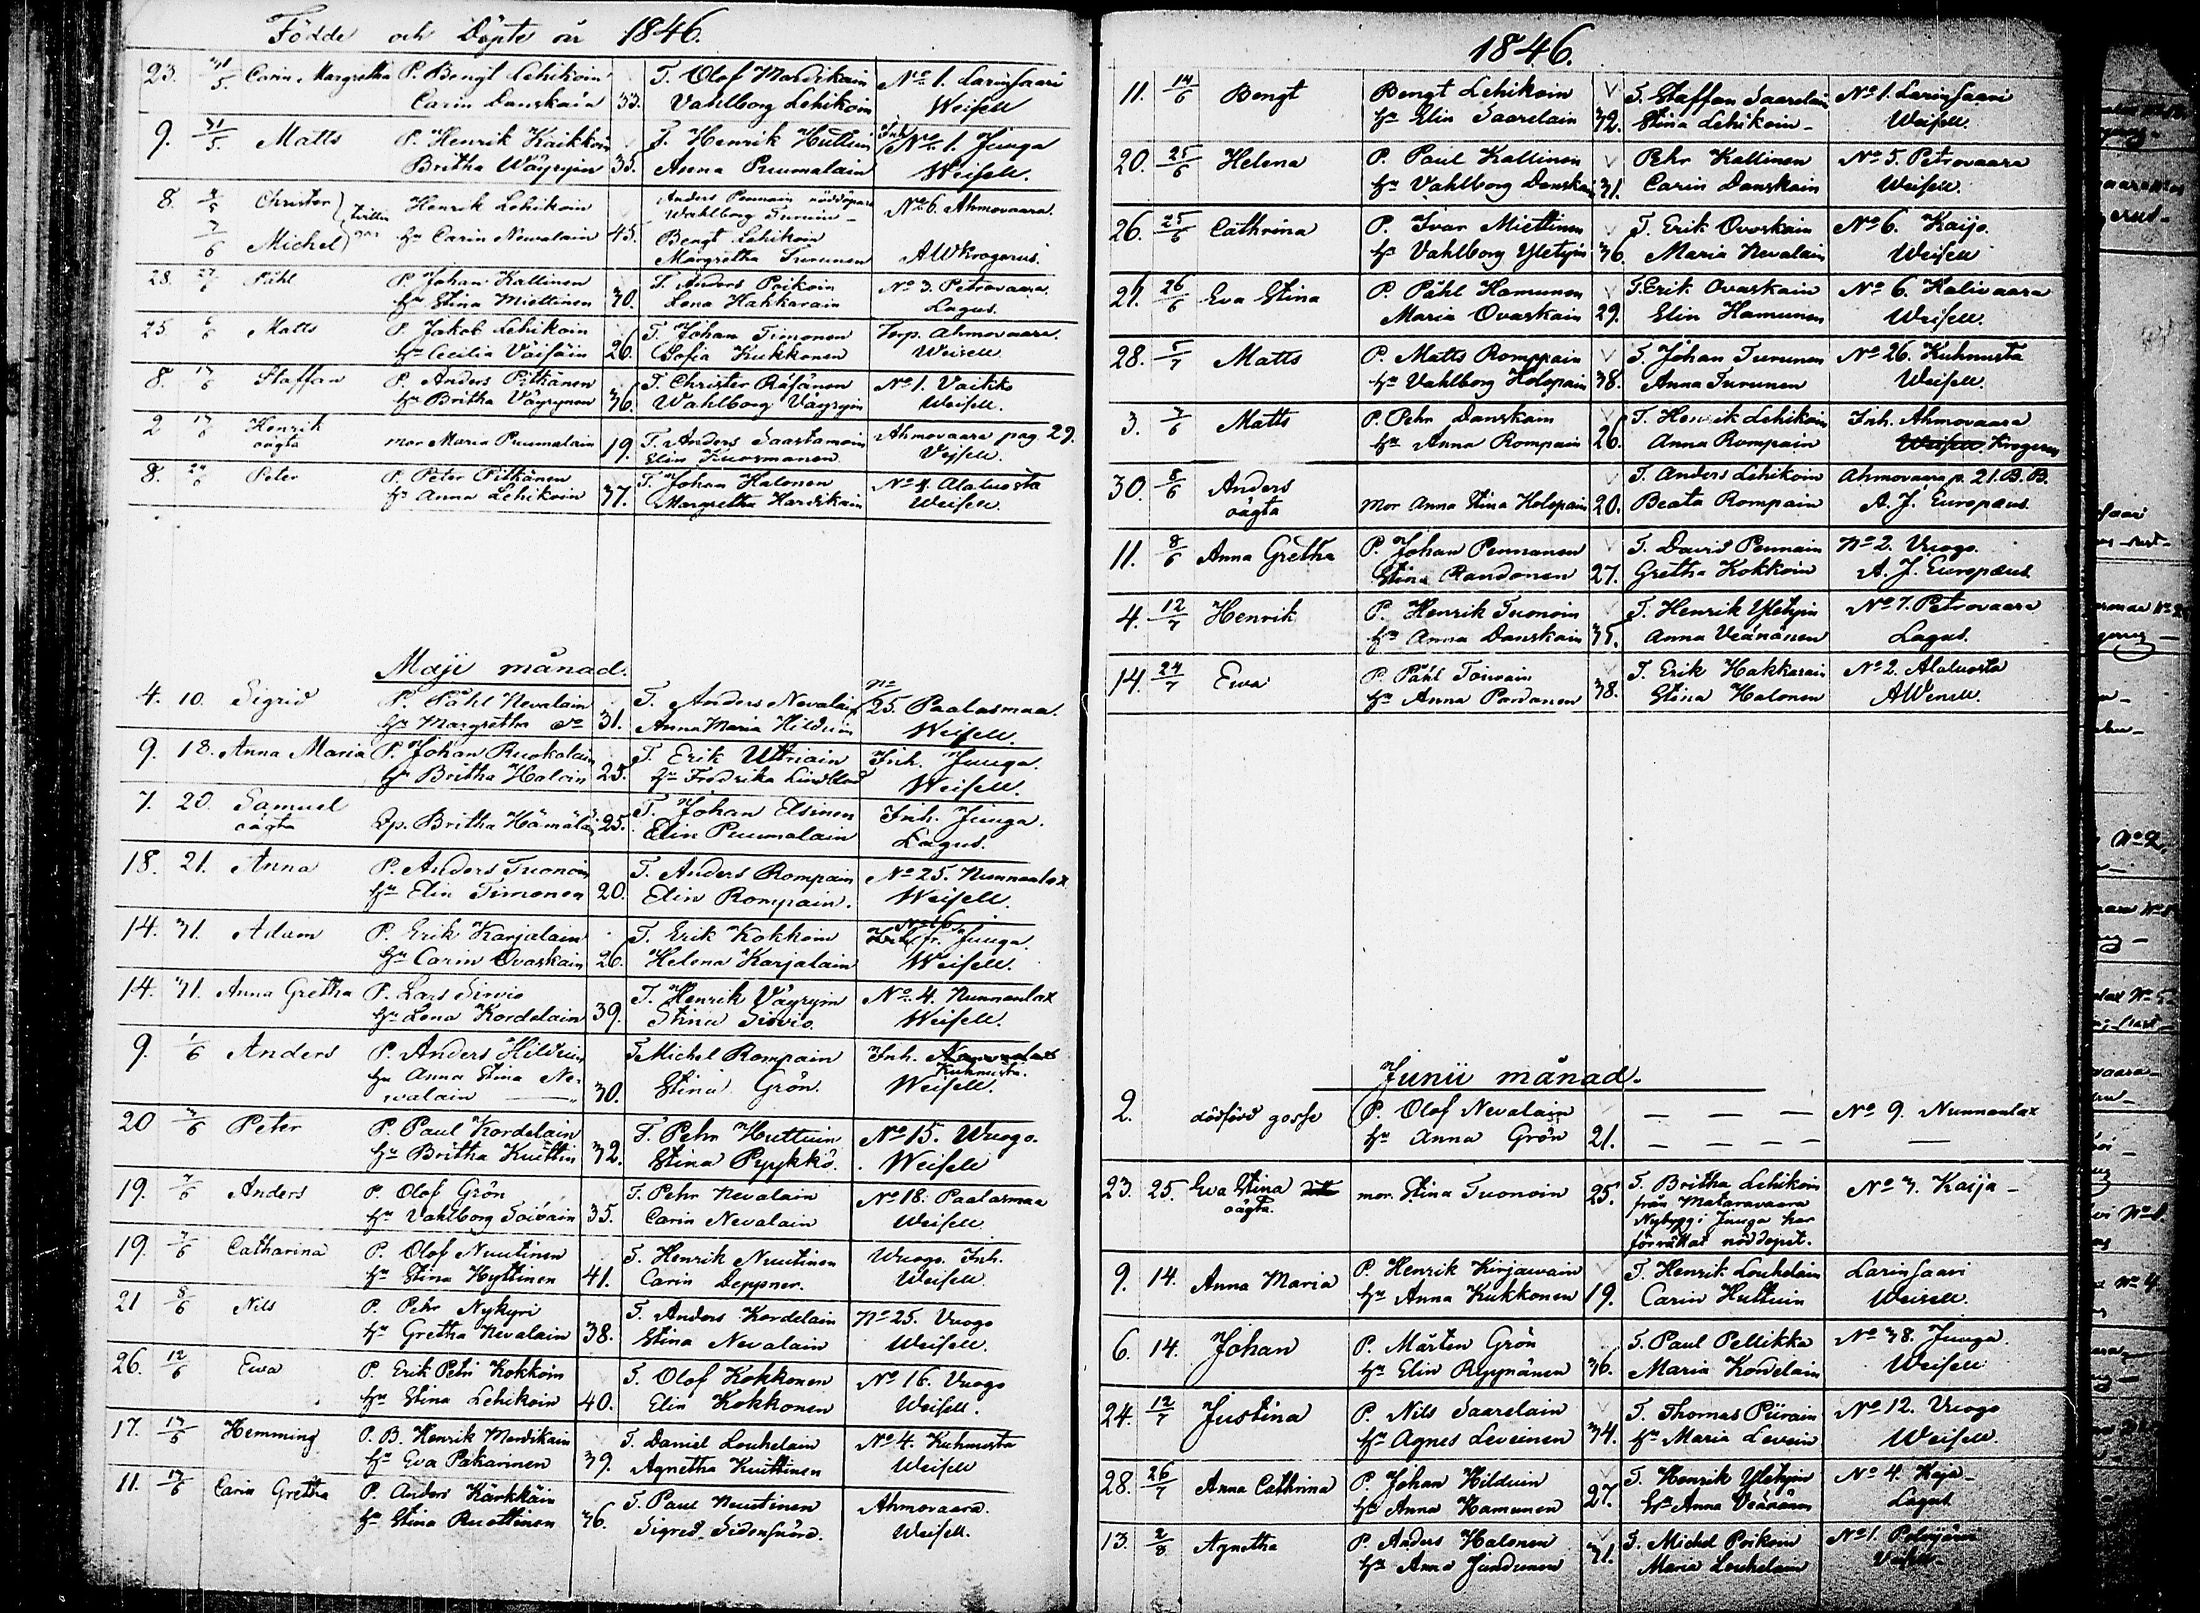 Födde och Döpte år 1846.
23. 31/5. Carin Margretha P. Bengt Lehikoin T. Olof Mardikain No 1. Larinsaari
Carin Danskain 33. Vahlborg Lehikoin Weisell
9. 31/5. Matts P. Henrik Kaikkoin T. Henrik Huttuin Inh. No 1. Juuga
Britha Wäyryin 35. Anna Puumalain Weisell.
8. Christer Tvillingar Henrik Lehikoin Anders Pennain nöddöpare No 6. Ahmovaara.
Wahlborg Turuin
7/6 Michel hu Carin Nevalain 45. Bengt Lehikoin
Margretha Turunen AWKrogerus.
28. Påhl P. Johan Kallinen T. Anders Poikoin No 3. Petrovaara.
hu Stina Miettinen 30. Lena Hakkarain Lagus.
25 6/6 Matts P. Jakob Lehikoin T. Johan Timonen Torp. Ahmovaara.
hu Cecilia Väisäin 26. Sofia Kukkonen Weisell.
8. 17/6 Staffan P. Anders Pitkänen T. Christer Räsänen No 1. Vaikko
hu Britha Väyrynen 36. Wahlborg Väyryin Weisell.
2 17/6 Henrik oägta mor Maria Puumalain 19. T. Anders Saastamoin Ahmovaara pag. 29.
Elin Kuosmanen Weisell.
8. 24/6 Peter P. Peter Pitkänen T. Johan Halonen No 4. Alaluosta
hu Anna Lehikoin 37. Margretha Hardikain Weisell.
Maji månad.
4. 10. Sigrid P. Påhl Nevalain T. Anders Nevalain No 25. Paalasmaa.
hu Margretha Do 31. Anna Maria Hilduin Weisell.
9. 18. Anna Maria P. Johan Ruokolain T. Erik Uttriain Inh. Juuga.
hu Britha Haloin 25. hu Fredrika Lindblad Weisell.
7. 20. Samuel oägta Qp. Britha Hämäläi 25. T. Johan Elsinen Inh. Juuga.
Elin Puumalain Lagus.
18. 21. Anna P. Anders Tuonoin T. Anders Rompain No 25. Nunnanlax
hu Elin Timonen 20. Elin Rompain. Weisell.
14. 31. Adam P. Erik Karjalain T. Erik Kokkoin Juuga.
hu Carin Ovaskain 26. Helena Karjalain Weisell.
14. 31. Anna Gretha P. Lars Sirviö T. Henrik Väyryin No 4. Nunnanlax
hu Lena Kordelain 39. Stina Sirviö Weisell.
9. 1/6 Anders P. Anders Hilduin T. Michel Rompain Inh. Nunnanlax
hu Anna Stina Ne- Kuhnusta.
valain 30. Stina Grön. Weisell.
20 3/6 Peter P. Paul Kordelain T. Pehr Huttuin No 15. Wuogo.
hu Britha Kuittin 32. Stina Pyykkö. Weisell
19. 7/6 Anders P. Olof Grön T. Pehr Nevalain No 18. Paalasmaa
hu Vahlborg Toivain 35. Carin Nevalain Weisell.
19. 7/6 Catharina P. Olof Nuutinen T. Henrik Nuutinen Wuogo. Inh.
hu Stina Hyttinen 41. Carin Deppner. Weisell.
21 8/6 Nils P. Pehr Nykyri T. Anders Kordelain No 25. Vuogo
hu Gretha Nevalain 38. Stina Nevalain Weisell.
26. 12/6 Ewa P. Erik Petri Kokkoin T. Olof Kokkonen No 16. Vuogo
hu Stina Lehikoin 40. Elin Kokkonen Weisell.
17. 13/6 Hemming P. B. Henrik Mardikain T. Daniel Louhelain No 4. Kuhnusta
hu Eva Pakarinen 39. Agnetha Kuittinen Weisell
11. 13/6 Carin Gretha P. Anders Kärkkäin T. Paul Nuutinen Ahmovaara.
hu Stina Ruottinen 36. Sigred Sidensnöre. Weisell.
1846.
11. 14/6 Bengt Bengt Lehikoin T. Staffan Saarelain No 1. Larinsaari
hu Elin Saarelain 32. Stina Lehikoin Weisell.
20. 25/6 Helena P. Paul Kallinen Pehr Kallinen No 5. Petrovaara
hu Vahlborg Danskain 31. Carin Danskain Weisell.
26. 25/6 Cathrina P. Ivar Miettinen T. Erik Ovaskain No 6. Kaijo.
hu Vahlborg Yletyin 36. Maria Nevalain Weisell
21. 26/6 Eva Stina P. Påhl Hamunen T. Erik Ovaskain No 6. Kalivaara
Maria Ovaskain 29. Elin Hamunen Weisell.
28. 5/7 Matts P. Matts Romppain T. Johan Turunen No 26. Kuhnusta
hu Vahlborg Holopain 38. Anna Turunen Weisell.
3. 7/6 Matts P. Pehr Danskain T. Henrik Lehikoin Inh. Ahmovaara
hu Anna Rompain 26. Anna Rompain Weisell. Krogerus
30. 8/6 Anders oägta T. Anders Lehikoin Ahmovaara p. 21. B. B.
mor Anna Stina Holopain 20. Beata Rompain A. J. Europæus.
11. 8/6 Anna Gretha P. Johan Pennanen T. David Pennain No 2. Vuogo.
Stina Randonen 27. Gretha Kokkoin A. J. Europæus.
4. 12/7 Henrik P. Henrik Tuonoin T. Henrik Yletyin No 7. Petrovaara
hu Anna Danskain 35. Anna Veänänen Lagus.
14. 24/7 Ewa P. Påhl Toivain T. Erik Hakkarain No 2. Alaluosta
hu Anna Pardanen 38. Stina Halonen AWenell.
Junii månad.
2. dödfödd gosse P. Olof Nevalain — — — No 9. Nunnanlax
hu Anna Grön 21. — — — — —
23. 25. Eva Stina oägta. mor. Stina Tuonoin 25. T. Britha Lehikoin No 3. Kaija
från Mataravaara
Nybygg i Juuga har
förrättat nöddopet.
9. 14. Anna Maria P. Henrik Kirjavain T. Henrik Louhelain Larinsaari
hu Anna Kukkonen 19. Carin Huttuin Weisell.
6. 14. Johan P. Mårten Grön T. Paul Pellikka No 38. Juuga.
hu Elin Reppänen 36. Maria Kordelain Weisell
24. 12/7 Justina P. Nils Saarelain T. Thomas Piirain No 12. Vuogo
hu Agnes Leveinen 34. hu Maria Levein Weisell.
28. 26/7 Anna Cathrina P. Johan Hilduin T. Henrik Yletyin No 4. Kaja
hu Anna Hamunen 27. hu Anna Veänänen Lagus.
13. 2/8 Agnetha P. Anders Halonen T. Michel Poikoin No 1.
hu Anna 31. Maria Louhelain